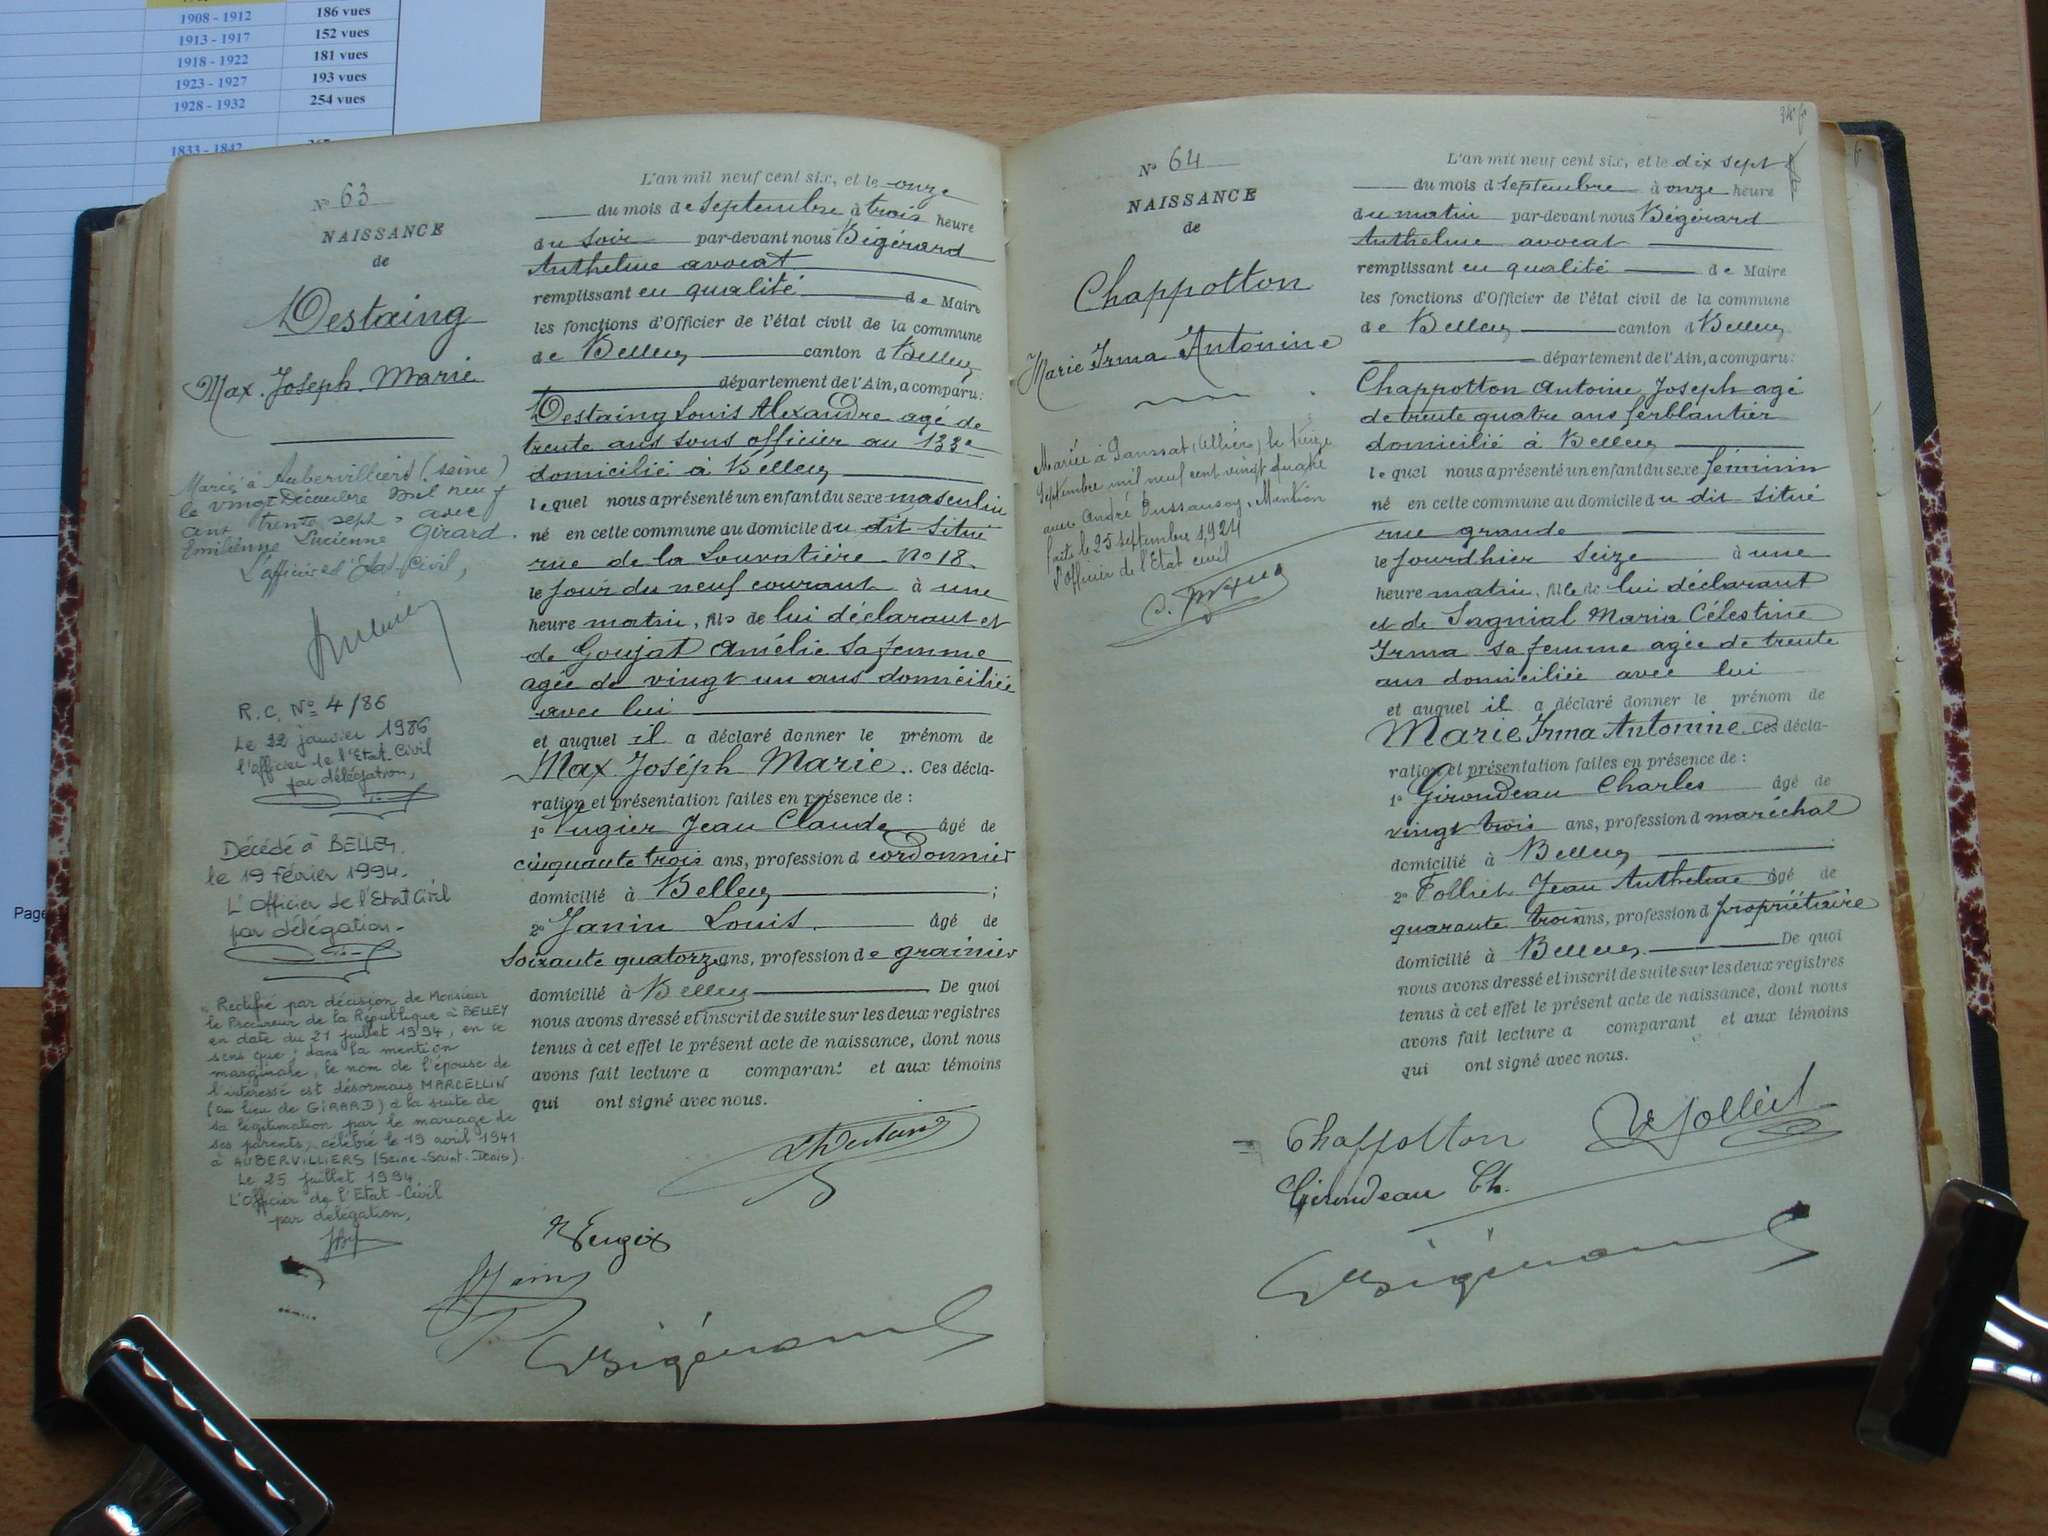 1908 - 1912 186 vues
1913 - 1917 152 vues
1918 - 1922 181 vues
1923 - 1927 193 vues
1928 - 1932 254 vues
1833 - 1842
Page
N° 63
NAISSANCE
de
Destaing
Max. Joseph. Marie
Marié à Aubervilliers (Seine)
le vingt Décembre mil neuf
cent trente sept, avec
Emilienne Lucienne Girard.
L'officier d'Etat-Civil,
R.C. N° 4/86
Le 22 janvier 1986
l'officier de l'Etat Civil
par délégation,
Décédé à BELLEY.
le 19 Février 1994.
L'Officier de l'Etat Civil
par délégation.
Rectifié par décision de Monsieur
le Procureur de la République à BELLEY
en date du 21 juillet 1994, en ce
sens que : dans la mention
marginale, le nom de l'épouse de
l'intéressé est désormais MARCELLIN
(au lieu de GIRARD) à la suite de
sa légitimation par le mariage de
ses parents, célébré le 19 avril 1941
à AUBERVILLIERS (Seine-Saint-Denis).
Le 25 juillet 1994
L'Officier de l'Etat-Civil
par délégation,
L'an mil neuf cent six, et le onze
du mois de septembre à trois heure
du soir par-devant nous Bigérard
Anthelme avocat
remplissant en qualité de Maire
les fonctions d'Officier de l'état civil de la commune
de Belley canton d Belley
département de l'Ain, a comparu :
Destaing Louis Alexandre agé de
trente ans sous officier au 133e
domicilié à Belley
lequel nous a présenté un enfant du sexe masculin
né en cette commune au domicile du dit situé
rue de la Louvatière No 18.
le jour du neuf courant à une
heure matin, fils de lui déclarant et
de Goujat Amélie sa femme
agée de vingt un ans domiciliée
avec lui
et auquel il a déclaré donner le prénom de
Max Joséph Marie.. Ces décla-
ration et présentation faites en présence de :
1° Vugier Jean Claude âgé de
cinquante trois ans, profession d cordonnier
domicilié à Belley ;
2° Janin Louis âgé de
soixante quatorze ans, profession de grainier
domicilié à Belley De quoi
nous avons dressé et inscrit de suite sur les deux registres
tenus à cet effet le présent acte de naissance, dont nous
avons fait lecture a comparant et aux témoins
qui ont signé avec nous.
N° 64
NAISSANCE
de
Chappotton
Marie Irma Antonine
Mariée à (Allier) le treize
septembre mil neuf cent vingt quatre
avec André Mention
faite le 25 septembre 1924
l'officier de l'Etat civil
L'an mil neuf cent six, et le dix sept
du mois d septembre à onze heure
du matin par-devant nous Bigérard
Anthelme avocat
remplissant en qualité de Maire
les fonctions d'Officier de l'état civil de la commune
de Belley canton d Belley
département de l'Ain, a comparu :
Chappotton Antoine Joseph agé
de trente quatre ans ferblantier
domicilié à Belley
lequel nous a présenté un enfant du sexe féminin
né en cette commune au domicile du dit situé
rue grande
le jourdhier seize à une
heure matin, fille de lui déclarant
et de Sagnial Maria Célestine
Irma sa femme agée de trente
ans domiciliée avec lui
et auquel il a déclaré donner le prénom de
Marie Irma Antonine Ces décla-
ration et présentation faites en présence de :
1° Girondeau Charles âgé de
vingt trois ans, profession d maréchal
domicilié à Belley
2° Folliet Jean Anthelme âgé de
quarante trois ans, profession d propriétaire
domicilié à Belley De quoi
nous avons dressé et inscrit de suite sur les deux registres
tenus à cet effet le présent acte de naissance, dont nous
avons fait lecture a comparant et aux témoins
qui ont signé avec nous.
Chappotton
Girondeau Ch.